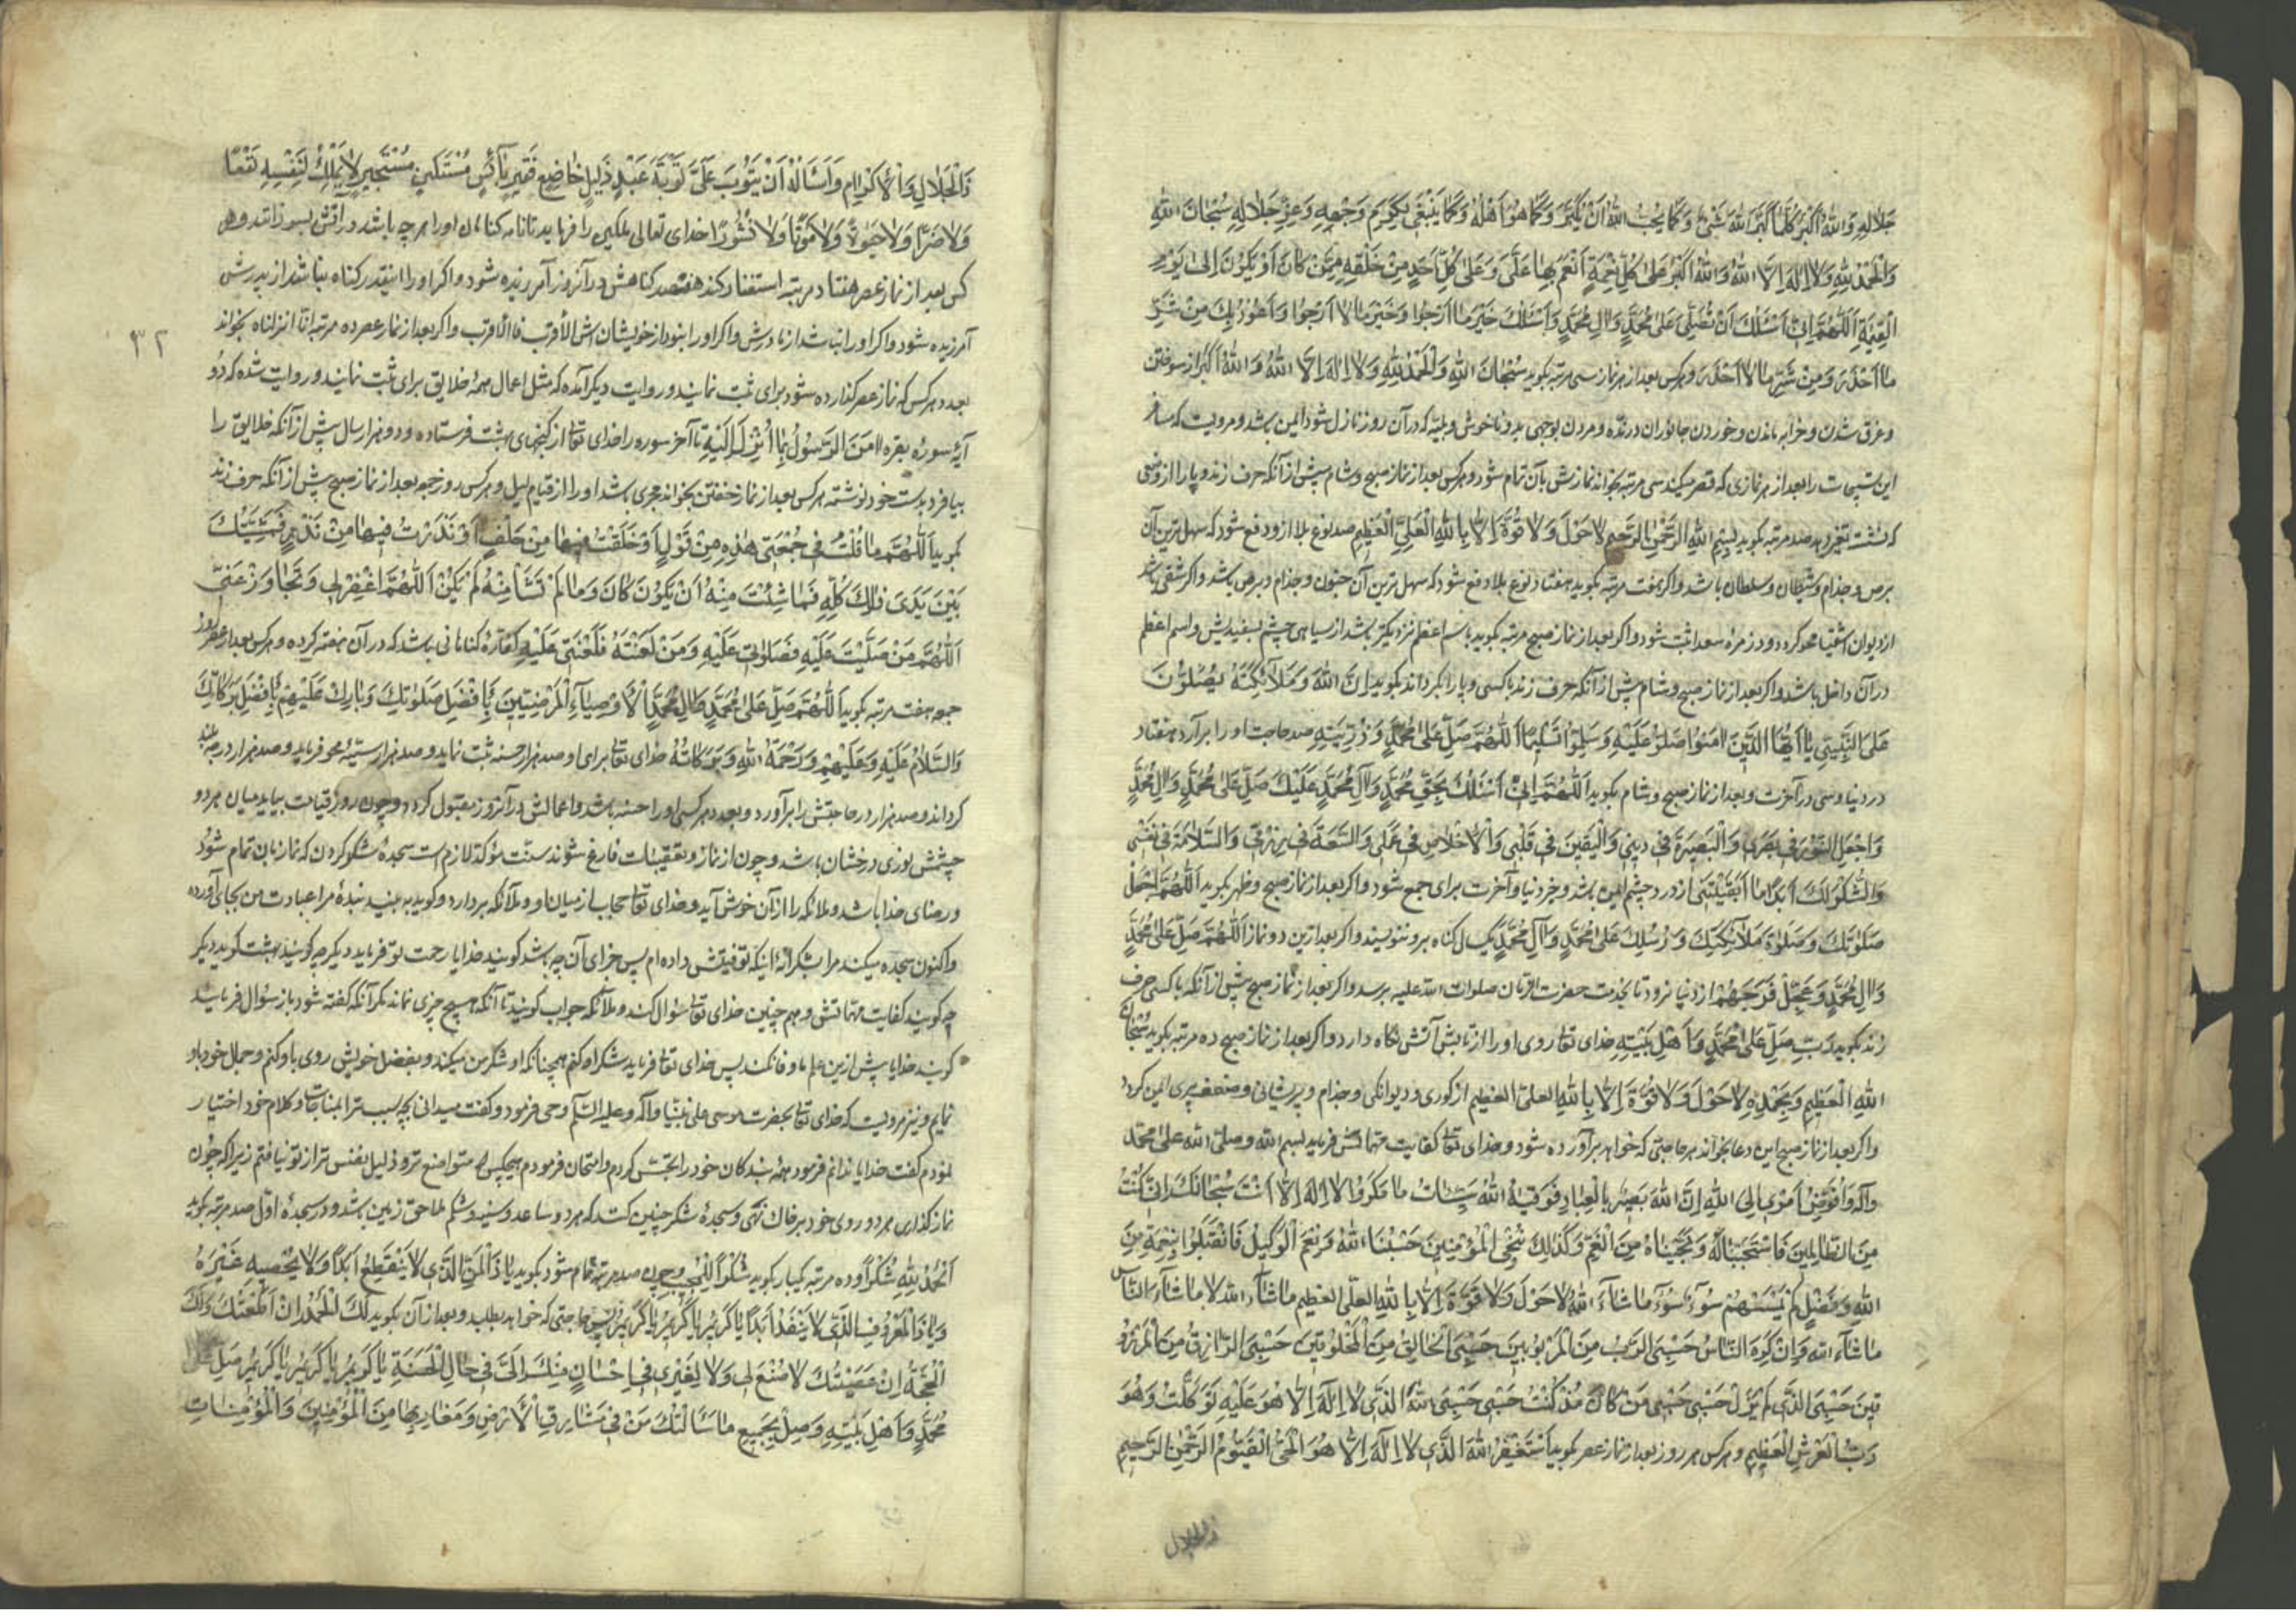 جَلَالِهِ وَاللهُ اَكْبَرُ كُلَّمَا كَبَّرَ اللهَ شَیْءٌ وَ كَمَا یُحِبُّ اللهُ اَنْ یُكَبَّرَ وَ كَمَا هُوَ اَهْلُهُ وَ كَمَا یَنْبَغِی لِكَرَمِ وَجْهِهِ وَ عِزِّ جَلَالِهِ سُبْحَانَ اللهِ
وَالْحَمْدُ لِلّهِ وَلَا اِلهَ اِلَّا اللهُ وَاللهُ اَكْبَرُ عَلی كُلِّ نِعْمَةٍ اَنْعَمَ بِهَا عَلَیَّ وَ عَلی كُلِّ اَحَدٍ مِنْ خَلْقِهِ مِمَّنْ كَانَ اَوْ یَكُونُ اِلی یَوْمِ
الْقِیمَةِ اَللّهُمَّ اِنّی اَسْئَلُكَ اَنْ تُصَلِّیَ عَلی مُحَمَّدٍ وَ الِ مُحَمَّدٍ وَ اَسْئَلُكَ خَیْرَ مَا اَرْجُوا وَ خَیْرَ مَا لَا اَرْجُوا وَ اَعُوذُ بِكَ مِنْ شَرِّ
مَا اَحْذَرُ وَ مِنْ شَرِّ مَا لَا اَحْذَرُ و هر كس بعد از هر نماز سی مرتبه بكوید سُبْحَانَ اللهِ وَالْحَمْدُ لِلّهِ وَلَا اِلهَ اِلَّا اللهُ وَ اللهُ اَكْبَرُ از سوختن
و غرق شدن و خرابه ماندن و خوردن جانوران درنده و مردن بوجهی بد و ناخوش و بلیه كه در آن روز نازل شود ایمن باشد و مرویست كه مسافر
این تسبیحات را بعد از هر نمازی كه قصر میكند سی مرتبه بخواند نمازش بآن تمام شود و هر كس بعد از نماز صبح و شام پیش از آنكه حرف زند و پا را از روشی
كه نشسته تغیر دهد صد مرتبه بكوید بِسْمِ اللهِ الرَّحْمنِ الرَّحیمِ لَا حَوْلَ وَلَا قُوَّةَ اِلَّا بِاللهِ الْعَلِیِّ الْعَظیمِ صد نوع بلا ازو دفع شود كه سهل ترین آن
برص و جذام و شیطان و سلطان باشد و اكر هفت مرتبه بكوید هفتاد نوع بلا دفع شود كه سهل ترین آن جنون و جذام و برص باشد و اكر شقی باشد
از دیوان اشقیا محو كردد و در زمره سعدا ثبت شود و اكر بعد از نماز صبح مرتبه بكوید باسم اعظم نزدیكتر باشد از سیاهی چشم بسفیدیش و اسم اعظم
در آن داخل باشد و اكر بعد از نماز صبح و شام پیش از آنكه حرف زند با كسی و پا را بكرداند بكوید اِنَّ اللهَ وَ مَلَائِكَتَهُ یُصَلُّونَ
عَلَی النَّبِیِّ یَا اَیُّهَا الَّذینَ امَنُوا صَلُّوا عَلَیْهِ وَ سَلِّمُوا تَسْلیمًا اَللّهُمَّ صَلِّ عَلی مُحَمَّدٍ وَ ذُرِّیَّتِهِ صد حاجت او را برآرد هفتاد
در دنیا و سی در آخرت و بعد از نماز صبح و شام بكوید اَللّهُمَّ اِنّی اَسْئَلُكَ بِحَقِّ مُحَمَّدٍ وَ آلِ مُحَمَّدٍ عَلَیْكَ صَلِّ عَلی مُحَمَّدٍ وَ الِ مُحَمَّدٍ
وَ اجْعَلِ النُّورَ فی بَصَری وَ الْبَصیرَةَ فی دینی وَ الْیَقینَ فی قَلْبی وَ الْاِخْلَاصَ فی عَمَلی وَ السَّعَةَ فی رِزْقی وَ السَّلَامَةَ فی نَفْسی
وَ الشُّكْرَ لَكَ اَبَدًا مَا اَبْقَیْتَنی از درد چشم ایمن باشد و خیر دنیا و آخرت برای جمع شود و اكر بعد از نماز صبح و ظهر بكوید اَللّهُمَّ اجْعَلْ
صَلَوتَكَ وَ صَلوةَ مَلَائِكَتِكَ وَ رُسُلِكَ عَلی مُحَمَّدٍ وَ آلِ مُحَمَّدٍ یكسال كناه برو ننویسند و اكر بعد ازین دو نماز اَللّهُمَّ صَلِّ عَلی مُحَمَّدٍ
وَ الِ مُحَمَّدٍ وَ عَجِّلْ فَرَجَهُمْ از دنیا نرود تا بخدمت حضرت صلوات الله علیه برسد و اكر بعد از نماز صبح پیش از آنكه با كسی حرف
زند بكوید رَبِّ صَلِّ عَلی مُحَمَّدٍ وَ اَهْلِ بَیْتِهِ خدای تعا روی او را از تابش آتش نكاه دارد و اكر بعد از نماز صبح ده مرتبه بكوید سُبْحَانَ
اللهِ الْعَظیمِ وَ بِحَمْدِهِ لَا حَوْلَ وَلَا قُوَّةَ اِلَّا بِاللهِ العلی العظیم از كوری و دیوانكی و جذام و پریشانی و ضعف پیری ایمن كردد
و اكر بعد از نماز صبح این دعا بخواند هر حاجتی كه خواهد برآورده شود و خدای تعا كفایت مهماتش فرماید بسم الله و صلی الله علی محمد
و آله وَ اُفَوِّضُ اَمْری اِلَی اللهِ اِنَّ اللهَ بَصیرٌ بِالْعِبَادِ فَوَقیهُ اللهُ سَیِّئَاتِ مَا مَكَرُوا لَا اِلهَ اِلَّا اَنْتَ سُبْحَانَكَ اِنّی كُنْتُ
مِنَ الظَّالِمینَ فَاسْتَجَبْنَا لَهُ وَ نَجَّیْنَاهُ مِنَ الْغَمِّ وَ كَذلِكَ نُنْجِی الْمُؤْمِنینَ حَسْبُنَا اللهُ وَ نِعْمَ الْوَكیلُ فَانْقَلَبُوا بِنِعْمَةٍ مِنَ
اللهِ وَ فَضْلٍ لَمْ یَمْسَسْهُمْ سُوءٌ مَا شَاءَ اللهُ لَا حَوْلَ وَلَا قُوَّةَ اِلَّا بِاللهِ العلی العظیم ما شاء الله لا ما شاء الناس
ما شاء الله وَ اِنْ كَرِهَ النَّاسُ حَسْبِیَ الرَّبُّ مِنَ الْمَرْبُوبینَ حَسْبِیَ الْخَالِقُ مِنَ الْمَخْلُوقینَ حَسْبِیَ الرَّازِقُ مِنَ الْمَرْزُو
قینَ حَسْبِیَ الَّذی لَمْ یَزَلْ حَسْبی حَسْبی مَنْ كَانَ مُذْ كُنْتُ حَسْبی حَسْبِیَ اللهُ الَّذی لَا اِلهَ اِلَّا هُوَ عَلَیْهِ تَوَكَّلْتُ وَ هُوَ
رَبُّ الْعَرْشِ الْعَظیمِ و هر كس هر روز بعد از نماز عصر بكوید اَسْتَغْفِرُ اللهَ الَّذی لَا اِلهَ اِلَّا هُوَ الْحَیُّ الْقَیُّومُ الرَّحْمنُ الرَّحیمُ
ذوالجلال
ذَالْجَلَالِ وَ الْاِكْرَامِ وَ اَسْأَلُهُ اَنْ یَتُوبَ عَلَیَّ تَوْبَةَ عَبْدٍ ذَلیلٍ خَاضِعٍ فَقیرٍ بَائِسٍ مُسْتَكینٍ مُسْتَجیرٍ لَا یَمْلِكُ لِنَفْسِهِ نَفْعًا
وَلَا ضَرًّا وَلَا حَیوةً وَلَا مَوْتًا وَلَا نُشُورًا خدای تعالی ملكین را فرماید تا نامه كناهان او را هر چه باشد در آتش بسوزانند و هر
كس بعد از نماز عصر هفتاد مرتبه استغفار كند هفتصد كناهش در آنروز آمرزیده شود و اكر او را اینقدر كناه نباشد از پدرش
آمرزیده شود و اكر او را نباشد از مادرش و اكر او را نبود از خویشان اش الأقرب فالأقرب و اكر بعد از نماز عصر ده مرتبه انا انزلناه بخواند
۳۲
بعدد هر كس كه نماز عصر كذارده شود برای ثبت نمایند و روایت دیكر آمده كه مثل اعمال همهٔ خلایق برای ثبت نمایند و روایت شده كه دو
آیهٔ سورهٔ بقره امَنَ الرَّسُولُ بِمَا اُنْزِلَ اِلَیْهِ تا آخر سوره را خدای تعا از كنجهای بهشت فرستاده و دو هزار سال پیش از آنكه خلایق را
بیافرد بدست خود نوشته هر كس بعد از نماز خفتن بخواند مجری باشد او را از قیام لیل و هر كس روز جمعه بعد از نماز صبح پیش از آنكه حرف زند
بكوید اَللّهُمَّ مَا قُلْتُ فی جُمْعَتی هذِهِ مِنْ قَوْلٍ اَوْ حَلَفْتُ فیهَا مِنْ حَلْفٍ اَوْ نَذَرْتُ فیهَا مِنْ نَذْرٍ فَمَشِیَّتُكَ
بَیْنَ یَدَیْ ذلِكَ كُلِّهِ فَمَا شِئْتَ مِنْهُ اَنْ یَكُونَ كَانَ وَ مَا لَمْ تَشَأْ مِنْهُ لَمْ یَكُنْ اَللّهُمَّ اغْفِرْ لی وَ تَجَاوَزْ عَنّی
اَللّهُمَّ مَنْ صَلَّیْتَ عَلَیْهِ فَصَلَوتی عَلَیْهِ وَ مَنْ لَعَنْتَهُ فَلَعْنَتی عَلَیْهِ كفارهٔ كناهانی باشد كه در آن هفته كرده و هر كس بعد از عصر روز
جمعه هفت مرتبه بكوید اَللّهُمَّ صَلِّ عَلی مُحَمَّدٍ وَ الِ مُحَمَّدٍ الْاَوْصِیَاءِ الْمَرْضِیِّینَ بِاَفْضَلِ صَلَوتِكَ وَ بَارِكْ عَلَیْهِمْ بِاَفْضَلِ بَرَكَاتِكَ
وَ السَّلَامُ عَلَیْهِ وَ عَلَیْهِمْ وَ رَحْمَةُ اللهِ وَ بَرَكَاتُهُ خدای تعا برای او صد هزار حسنه ثبت نماید و صد هزار سیئه محو فرماید و صد هزار درجه بلند
كرداند و صد هزار حاجتش را برآورد و بعدد هر كسی او را حسنه باشد و اعمالش در آنروز مقبول كردد و چون روز قیامت بیاید میان هر دو
چشمش نوری درخشان باشد و چون از نماز و تعقیبات فارغ شوند سنت مؤكد لازم است سجدهٔ شكر كردن كه نماز بآن تمام شود
و رضای خدا باشد و ملائكه را از آن خوش آید و خدای تعا حجاب از میان او و ملائكه بردارد و كوید ببینید بندهٔ مرا عبادت من بجای آورده
و اكنون سجده میكند مرا بشكرانه اینكه توفیقش داده ام پس جزای آن چه باشد كویند خدایا رحمت تو فرماید دیكر چه كویند بهشت كوید دیكر
چه كویند كفایت مهماتش و هم چنین خدای تعا سؤال كند و ملائكه جواب كویند تا آنكه هیچ چیزی نماند مكر آنكه كفته شود باز سؤال فرماید
كویند خدایا پیش ازین علم ما وفا نكند پس خدای تعا فرماید شكر او كنم همچنانكه او شكر من میكند و بفضل خویش روی باو كنم و جمال خود باو
نمایم و نیز مرویست كه خدای تعا بحضرت موسی علی نبینا و آله و علیه السلام وحی فرمود و كفت میدانی بچه سبب ترا بمناجات و كلام خود اختیار
نمودم كفت خدایا ندانم فرمود همهٔ بندكان خود را تجسس كردم و امتحان فرمودم هیچكس متواضع تر و ذلیل نفس تر از تو نیافتم زیرا كه چون
نماز كذاری هر دو روی خود بر خاك نهی و سجدهٔ شكر چنین كنند كه هر دو ساعد و سینه و شكم ملاحق زمین باشد و در سجدهٔ اول صد مرتبه بكوید
اَلْحَمْدُ لِلّهِ شُكْرًا و ده مرتبه یكبار بكوید شُكْرًا لِلْمُجیبِ و چون صد مرتبه تمام شود بكوید یَا ذَا الْمَنِّ الَّذی لَا یَنْقَطِعُ اَبَدًا وَلَا یُحْصیهِ غَیْرُهُ
وَ یَا ذَا الْمَعْرُوفِ الَّذی لَا یَنْفَدُ اَبَدًا یَا كَریمُ یَا كَریمُ یَا كَریمُ پس حاجتی كه خواهد بطلبد و بعد از آن بكوید لَكَ الْحَمْدُ اِنْ اَطَعْتُكَ وَ لَكَ
الْحُجَّةُ اِنْ عَصَیْتُكَ لَا صُنْعَ لی وَلَا لِغَیْری فی اِحْسَانٍ مِنْكَ اِلَیَّ فی حَالِ الْحَسَنَةِ یَا كَریمُ یَا كَریمُ یَا كَریمُ صَلِّ عَلی
مُحَمَّدٍ وَ اَهْلِ بَیْتِهِ وَ صِلْ بِجَمیعِ مَا سَأَلْتُكَ مَنْ فی مَشَارِقِ الْاَرْضِ وَ مَغَارِبِهَا مِنَ الْمُؤْمِنینَ وَ الْمُؤْمِنَاتِ